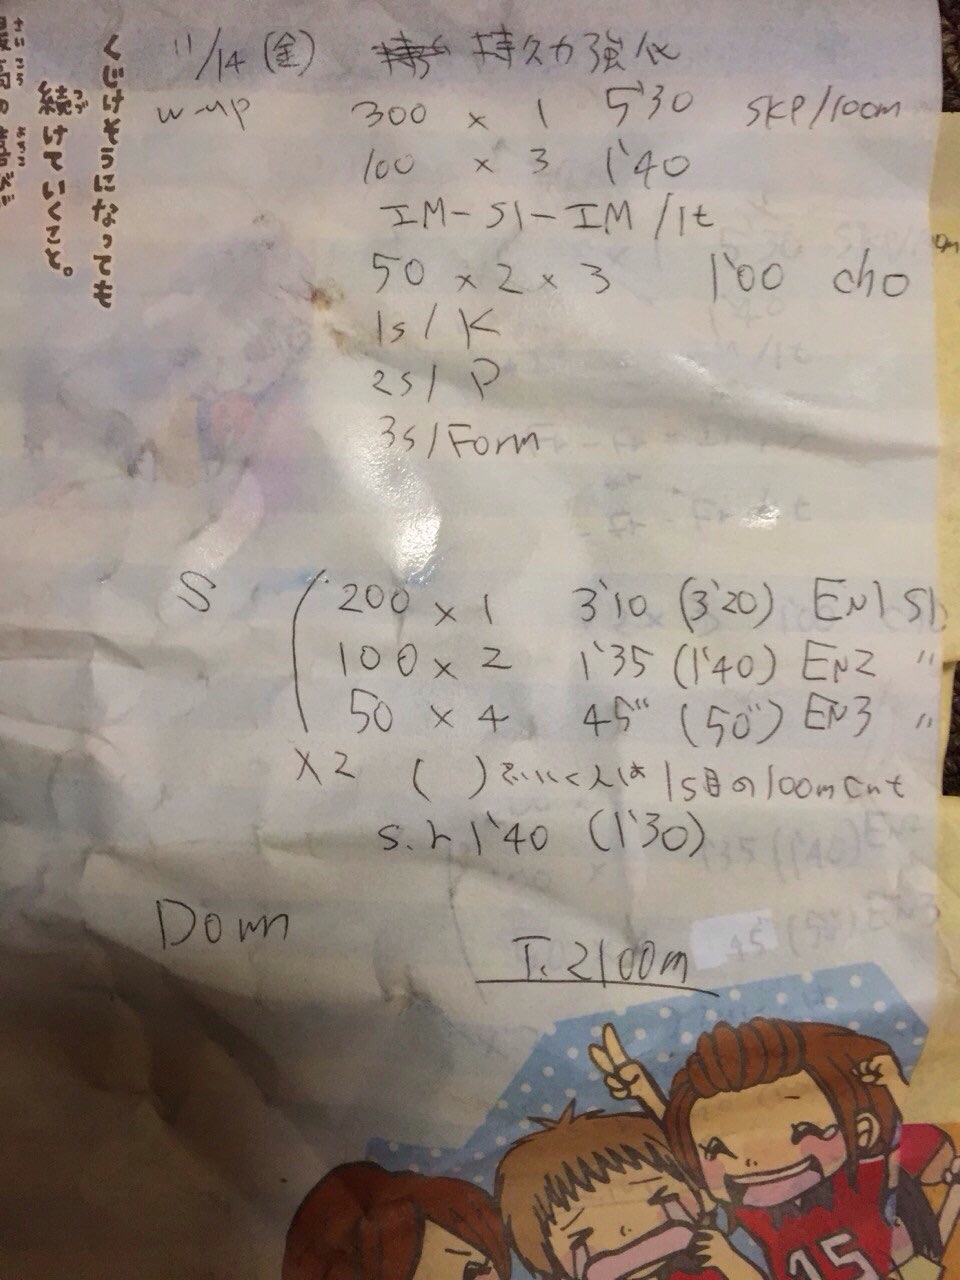 11/14 (金) 持久力強化
W-up 300 × 1 5'30 SKP/100m
100 × 3 1'40
IM-S1-IM/1t
50 × 2 × 3 1'00 cho
1s/K
2s/P
3s/Form
S 200 × 1 3'10 (3'20) EN1 S1
100 × 2 1'35 (1'40) EN2 〃
50 × 4 45" (50") EN3 〃
×2 ( ) 人は 1s目の100m cut
s.r 1'40 (1'30)
Down
T. 2100m
くじけそうになっても
続けていくこと。
つづ
さいこう
15